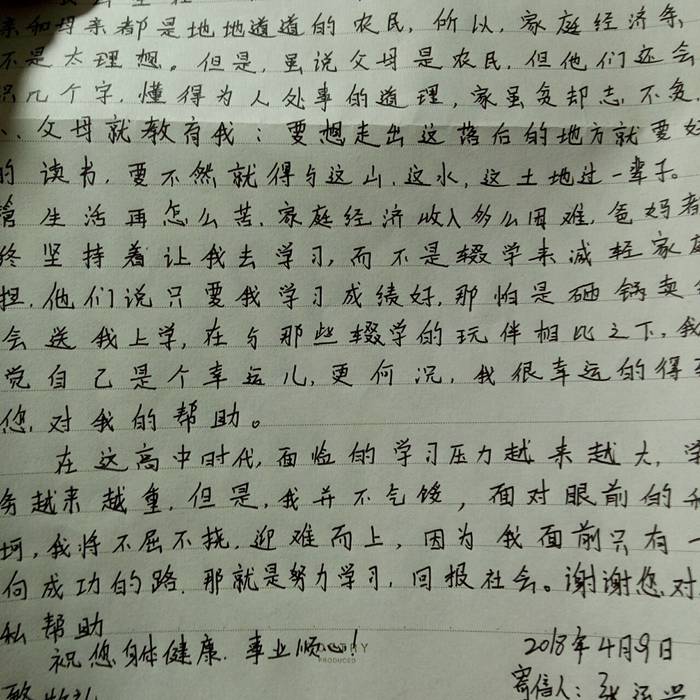 亲和母亲都是地地道道的农民,所以,家庭经济条
不是太理想。但是,虽说父母是农民,但他们还会
识几个字,懂得为人处事的道理,家虽贫却志不贫.
父母就教育我:要想走出这落后的地方就要好
的读书,要不然就得与这山,这水,这土地过一辈子。
管生活再怎么苦,家庭经济收入多么困难,爸妈者
终坚持着让我去学习,而不是辍学来减轻家庭
担,他们说只要我学习成绩好,那怕是砸锅卖
会送我上学,在与那些辍学的玩伴相比之下,我
觉自己是个幸运儿,更何况,我很幸运的得到
您,对我的帮助。
在这高中时代,面临的学习压力越来越大,学
务越来越重,但是,我并不气馁,面对眼前的
坷,我将不屈不挠,迎难而上,因为我面前只有一
向成功的路,那就是努力学习,回报社会。谢谢您对
私帮助
祝您身体健康.事业顺心!
2018年4月9日
寄信人:张
PRODUCED